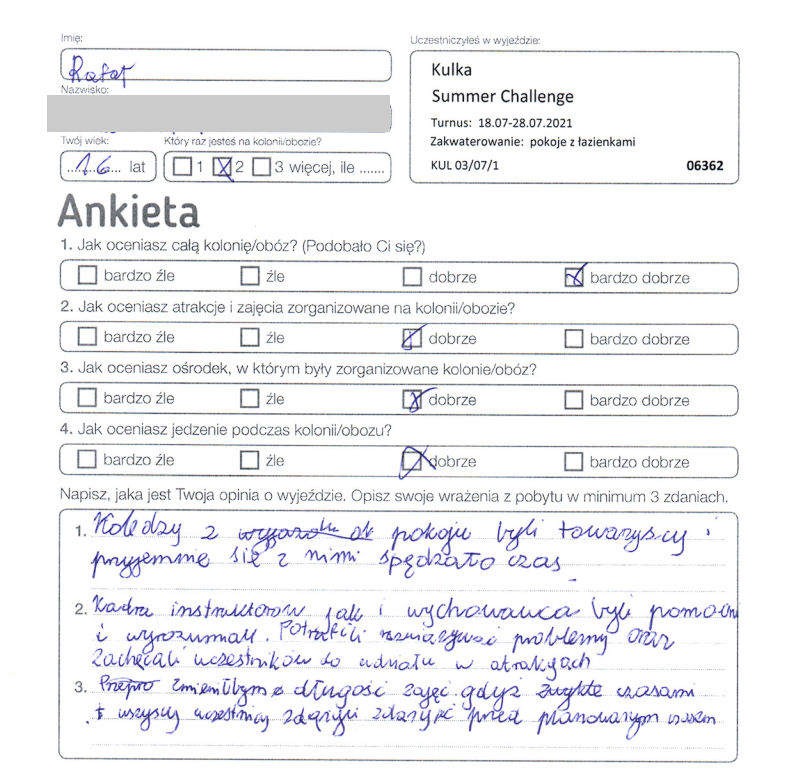 Imię:
Rafał
Nazwisko:
Uczestniczyłeś w wyjeździe:
Kulka
Summer Challenge
Turnus: 18.07-28.07.2021
Zakwaterowanie: pokoje z łazienkami
KUL 03/07/1 06362
Twój wiek: Który raz jesteś na kolonii/obozie?
....16.... lat 1 2 3 więcej, ile .......
Ankieta
1. Jak oceniasz całą kolonię/obóz? (Podobało Ci się?)
bardzo źle źle dobrze bardzo dobrze
2. Jak oceniasz atrakcje i zajęcia zorganizowane na kolonii/obozie?
bardzo źle źle dobrze bardzo dobrze
3. Jak oceniasz ośrodek, w którym były zorganizowane kolonie/obóz?
bardzo źle źle dobrze bardzo dobrze
4. Jak oceniasz jedzenie podczas kolonii/obozu?
bardzo źle źle dobrze bardzo dobrze
Napisz, jaka jest Twoja opinia o wyjeździe. Opisz swoje wrażenia z pobytu w minimum 3 zdaniach.
1. Koledzy z pokoju byli towarzyscy i
przyjemnie się z nimi spędzało czas
2. Kadra instruktorów jak i wychowawca byli pomocni
i wyrozumiali. Potrafili rozwiązywać problemy oraz
zachęcali uczestników do udziału w atrakcjach
3. Zmieniłbym długość zajęć gdyż zwykle czasami
wszyscy uczestnicy zdążyć przed planowanym czasem